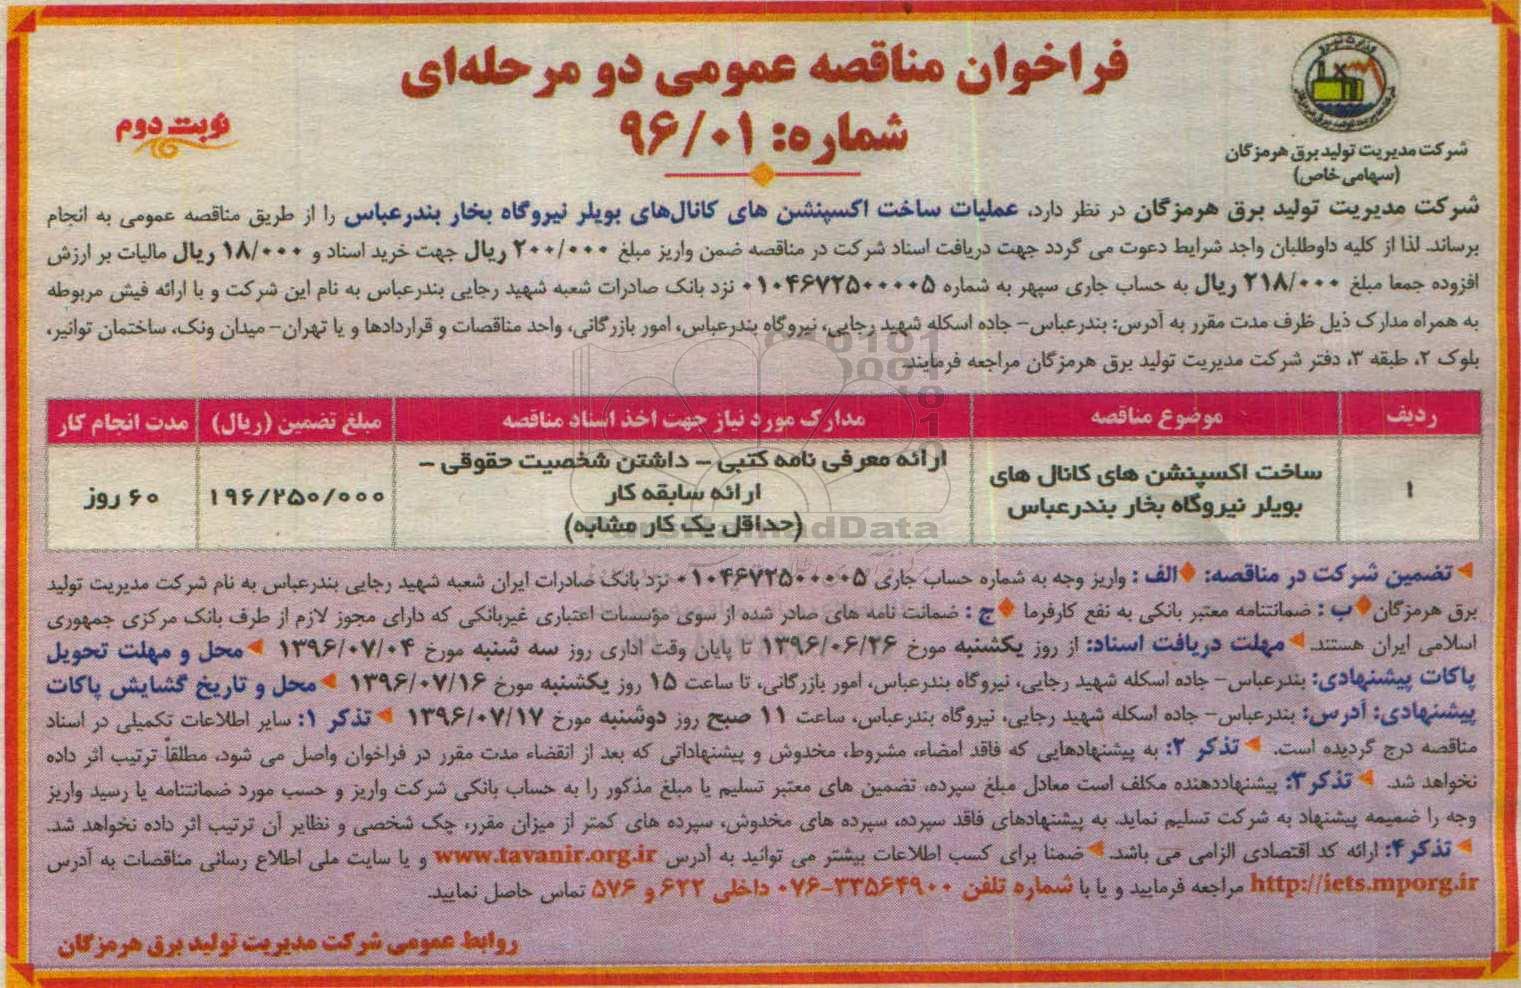 فراخوان مناقصه عمومی دو مرحله‌ای
شماره: ۹۶/۰۱
نوبت دوم
شرکت مدیریت تولید برق هرمزگان
(سهامی خاص)
شرکت مدیریت تولید برق هرمزگان در نظر دارد، عملیات ساخت اکسپنشن های کانال‌های بویلر نیروگاه بخار بندرعباس را از طریق مناقصه عمومی به انجام
برساند. لذا از کلیه داوطلبان واجد شرایط دعوت می گردد جهت دریافت اسناد شرکت در مناقصه ضمن واریز مبلغ ۲۰۰/۰۰۰ ریال جهت خرید اسناد و ۱۸/۰۰۰ ریال مالیات بر ارزش
افزوده جمعا مبلغ ۲۱۸/۰۰۰ ریال به حساب جاری سپهر به شماره ۰۱۰۴۶۷۲۵۰۰۰۰۵ نزد بانک صادرات شعبه شهید رجایی بندرعباس به نام این شرکت و با ارائه فیش مربوطه
به همراه مدارک ذیل ظرف مدت مقرر به آدرس: بندرعباس- جاده اسکله شهید رجایی، نیروگاه بندرعباس، امور بازرگانی، واحد مناقصات و قراردادها و یا تهران- میدان ونک، ساختمان توانیر،
بلوک ۲، طبقه ۳، دفتر شرکت مدیریت تولید برق هرمزگان مراجعه فرمایند.
ردیف موضوع مناقصه مدارک مورد نیاز جهت اخذ اسناد مناقصه مبلغ تضمین (ریال) مدت انجام کار
۱ ساخت اکسپنشن های کانال های بویلر نیروگاه بخار بندرعباس ارائه معرفی نامه کتبی - داشتن شخصیت حقوقی - ارائه سابقه کار (حداقل یک کار مشابه) ۱۹۶/۲۵۰/۰۰۰ ۶۰ روز
تضمین شرکت در مناقصه: الف: واریز وجه به شماره حساب جاری ۰۱۰۴۶۷۲۵۰۰۰۰۵ نزد بانک صادرات ایران شعبه شهید رجایی بندرعباس به نام شرکت مدیریت تولید
برق هرمزگان ب: ضمانتنامه معتبر بانکی به نفع کارفرما ج: ضمانت نامه های صادر شده از سوی مؤسسات اعتباری غیربانکی که دارای مجوز لازم از طرف بانک مرکزی جمهوری
اسلامی ایران هستند. مهلت دریافت اسناد: از روز یکشنبه مورخ ۱۳۹۶/۰۶/۲۶ تا پایان وقت اداری روز سه شنبه مورخ ۱۳۹۶/۰۷/۰۴ محل و مهلت تحویل
پاکات پیشنهادی: بندرعباس- جاده اسکله شهید رجایی، نیروگاه بندرعباس، امور بازرگانی، تا ساعت ۱۵ روز یکشنبه مورخ ۱۳۹۶/۰۷/۱۶ محل و تاریخ گشایش پاکات
پیشنهادی: آدرس: بندرعباس- جاده اسکله شهید رجایی، نیروگاه بندرعباس، ساعت ۱۱ صبح روز دوشنبه مورخ ۱۳۹۶/۰۷/۱۷ تذکر ۱: سایر اطلاعات تکمیلی در اسناد
مناقصه درج گردیده است. تذکر ۲: به پیشنهادهایی که فاقد امضاء، مشروط، مخدوش و پیشنهاداتی که بعد از انقضاء مدت مقرر در فراخوان واصل می شود، مطلقاً ترتیب اثر داده
نخواهد شد. تذکر۳: پیشنهاددهنده مکلف است معادل مبلغ سپرده، تضمین های معتبر تسلیم یا مبلغ مذکور را به حساب بانکی شرکت واریز و حسب مورد ضمانتنامه یا رسید واریز
وجه را ضمیمه پیشنهاد به شرکت تسلیم نماید. به پیشنهادهای فاقد سپرده، سپرده های مخدوش، سپرده های کمتر از میزان مقرر، چک شخصی و نظایر آن ترتیب اثر داده نخواهد شد.
تذکر۴: ارائه کد اقتصادی الزامی می باشد. ضمنا برای کسب اطلاعات بیشتر می توانید به آدرس www.tavanir.org.ir و یا سایت ملی اطلاع رسانی مناقصات به آدرس
http://iets.mporg.ir مراجعه فرمایید و یا با شماره تلفن ۳۳۵۶۴۹۰۰-۰۷۶ داخلی ۶۲۲ و ۵۷۶ تماس حاصل نمایید.
روابط عمومی شرکت مدیریت تولید برق هرمزگان